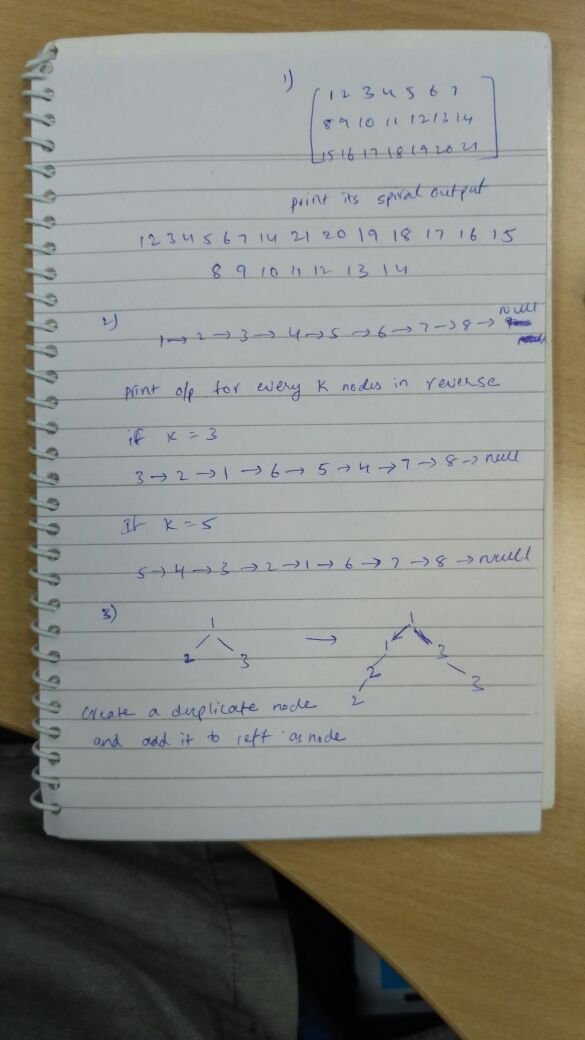 1)
1 2 3 4 5 6 7
8 9 10 11 12 12 14
15 16 17 18 19 20 21
print its spiral output
1 2 3 4 5 6 7 14 21 20 19 18 17 16 15
8 9 10 11 12 13 14
2)
1 → 2 → 3 → 4 → 5 → 6 → 7 → 8 → Null
print o/p for every K nodes in reverse
if K = 3
3 → 2 → 1 → 6 → 5 → 4 → 7 → 8 → null
If K = 5
5 → 4 → 3 → 2 → 1 → 6 → 7 → 8 → null
3)
1 → 1
2 3 1 3
2 3
2
create a duplicate node
and add it to left as node